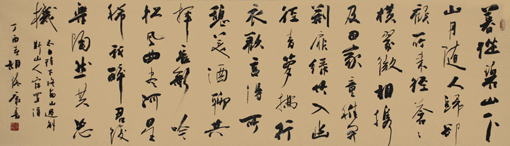 暮從碧山下
山月隨人歸却
顧所來徑蒼蒼
橫翠微相攜
及田家童稚開
荊扉綠竹入幽
徑青蘿拂行
衣歡言得所
憩美酒聊共
揮長歌吟
松風曲盡河星
稀我醉君復
樂陶然共忘
機
太白詩下終南山過斛
斯山人宿置酒
丁酉